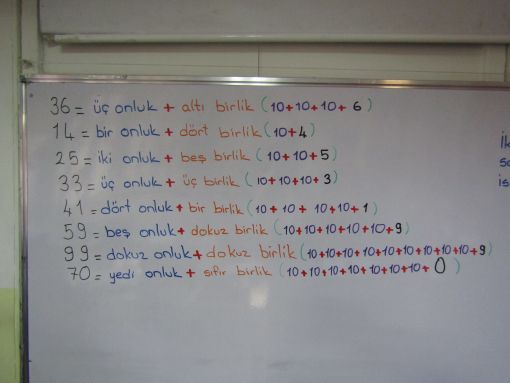 36 = üç onluk + altı birlik (10+10+10+ 6 )
14 = bir onluk + dört birlik (10+4)
25 = iki onluk + beş birlik ( 10+10+5)
33 = üç onluk + üç birlik ( 10+10+10+ 3)
41 = dört onluk + bir birlik (10+ 10+ 10+10+1 )
59 = beş onluk + dokuz birlik (10+10+10+10+10+9)
99 = dokuz onluk + dokuz birlik (10+10+10+10+10+10+10+10+10+9)
70 = yedi onluk + sıfır birlik (10+10+10+10+10+10+10+ 0 )